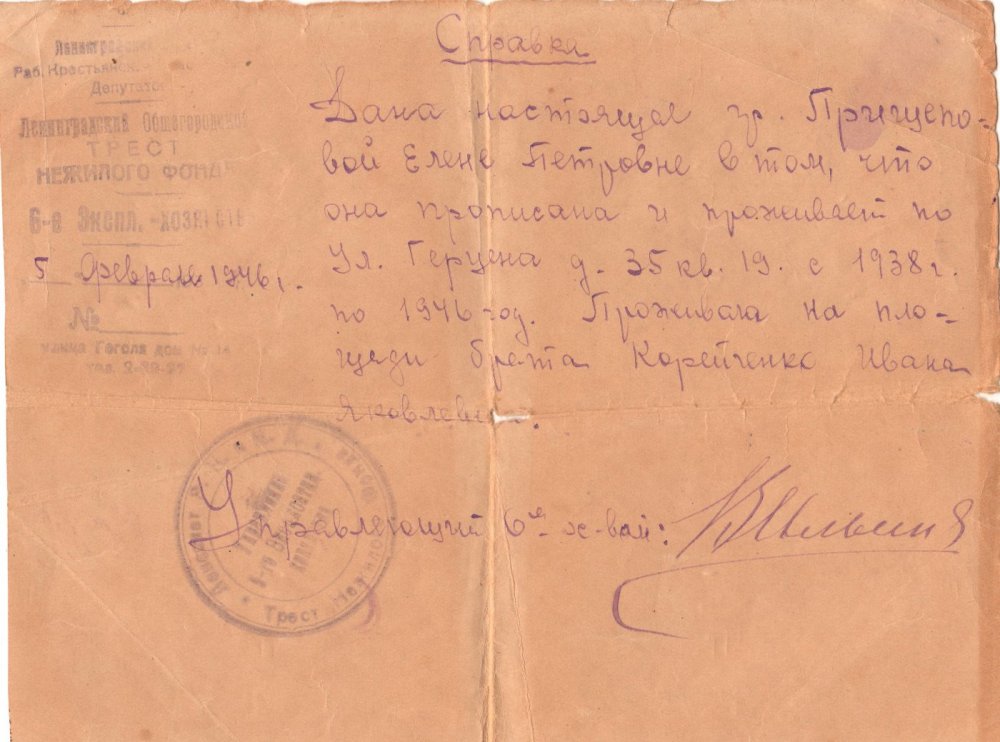 Справка
Ленинградский
Раб. Крестьянск.
Депутатов
Ленинградский Общегородской
ТРЕСТ
НЕЖИЛОГО ФОНДА
6-е Экспл. -хозяйство
5 Февраля 1946 г.
№
улица Гоголя дом №
тел.
Дана настоящае гр. Прищепо-
вой Елене Петровне в том, что
она прописана и проживает по
Ул. Герцена д. 35 кв. 19. с 1938 г.
по 1946 год. Проживала на пло-
щади брата Корейченко Ивана
Яковлевича.
Управляющий 6е х-вом:
Трест Нежилого